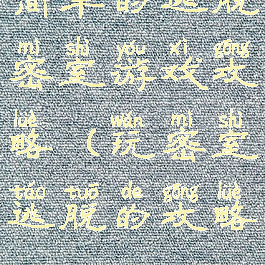 简单的逃脱
mì shì yóu xì gōng
密室游戏攻
luè wán mì shì
略（玩密室
táo tuō de gōng luè
逃脱的攻略